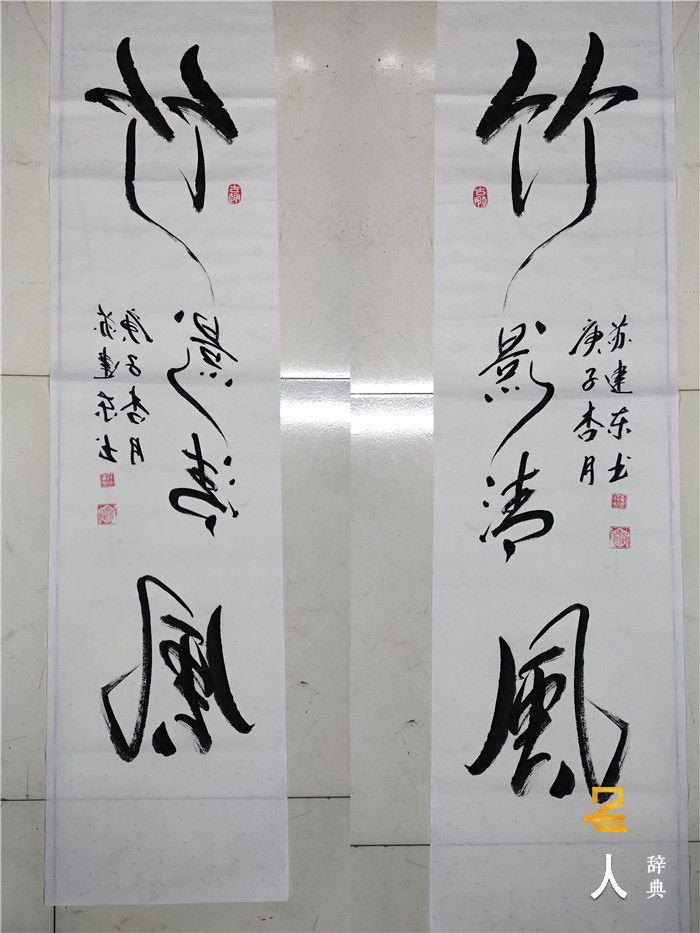 竹影清風
庚子杏月
苏建东书
竹影清風
庚子杏月
苏建东书
名人辞典